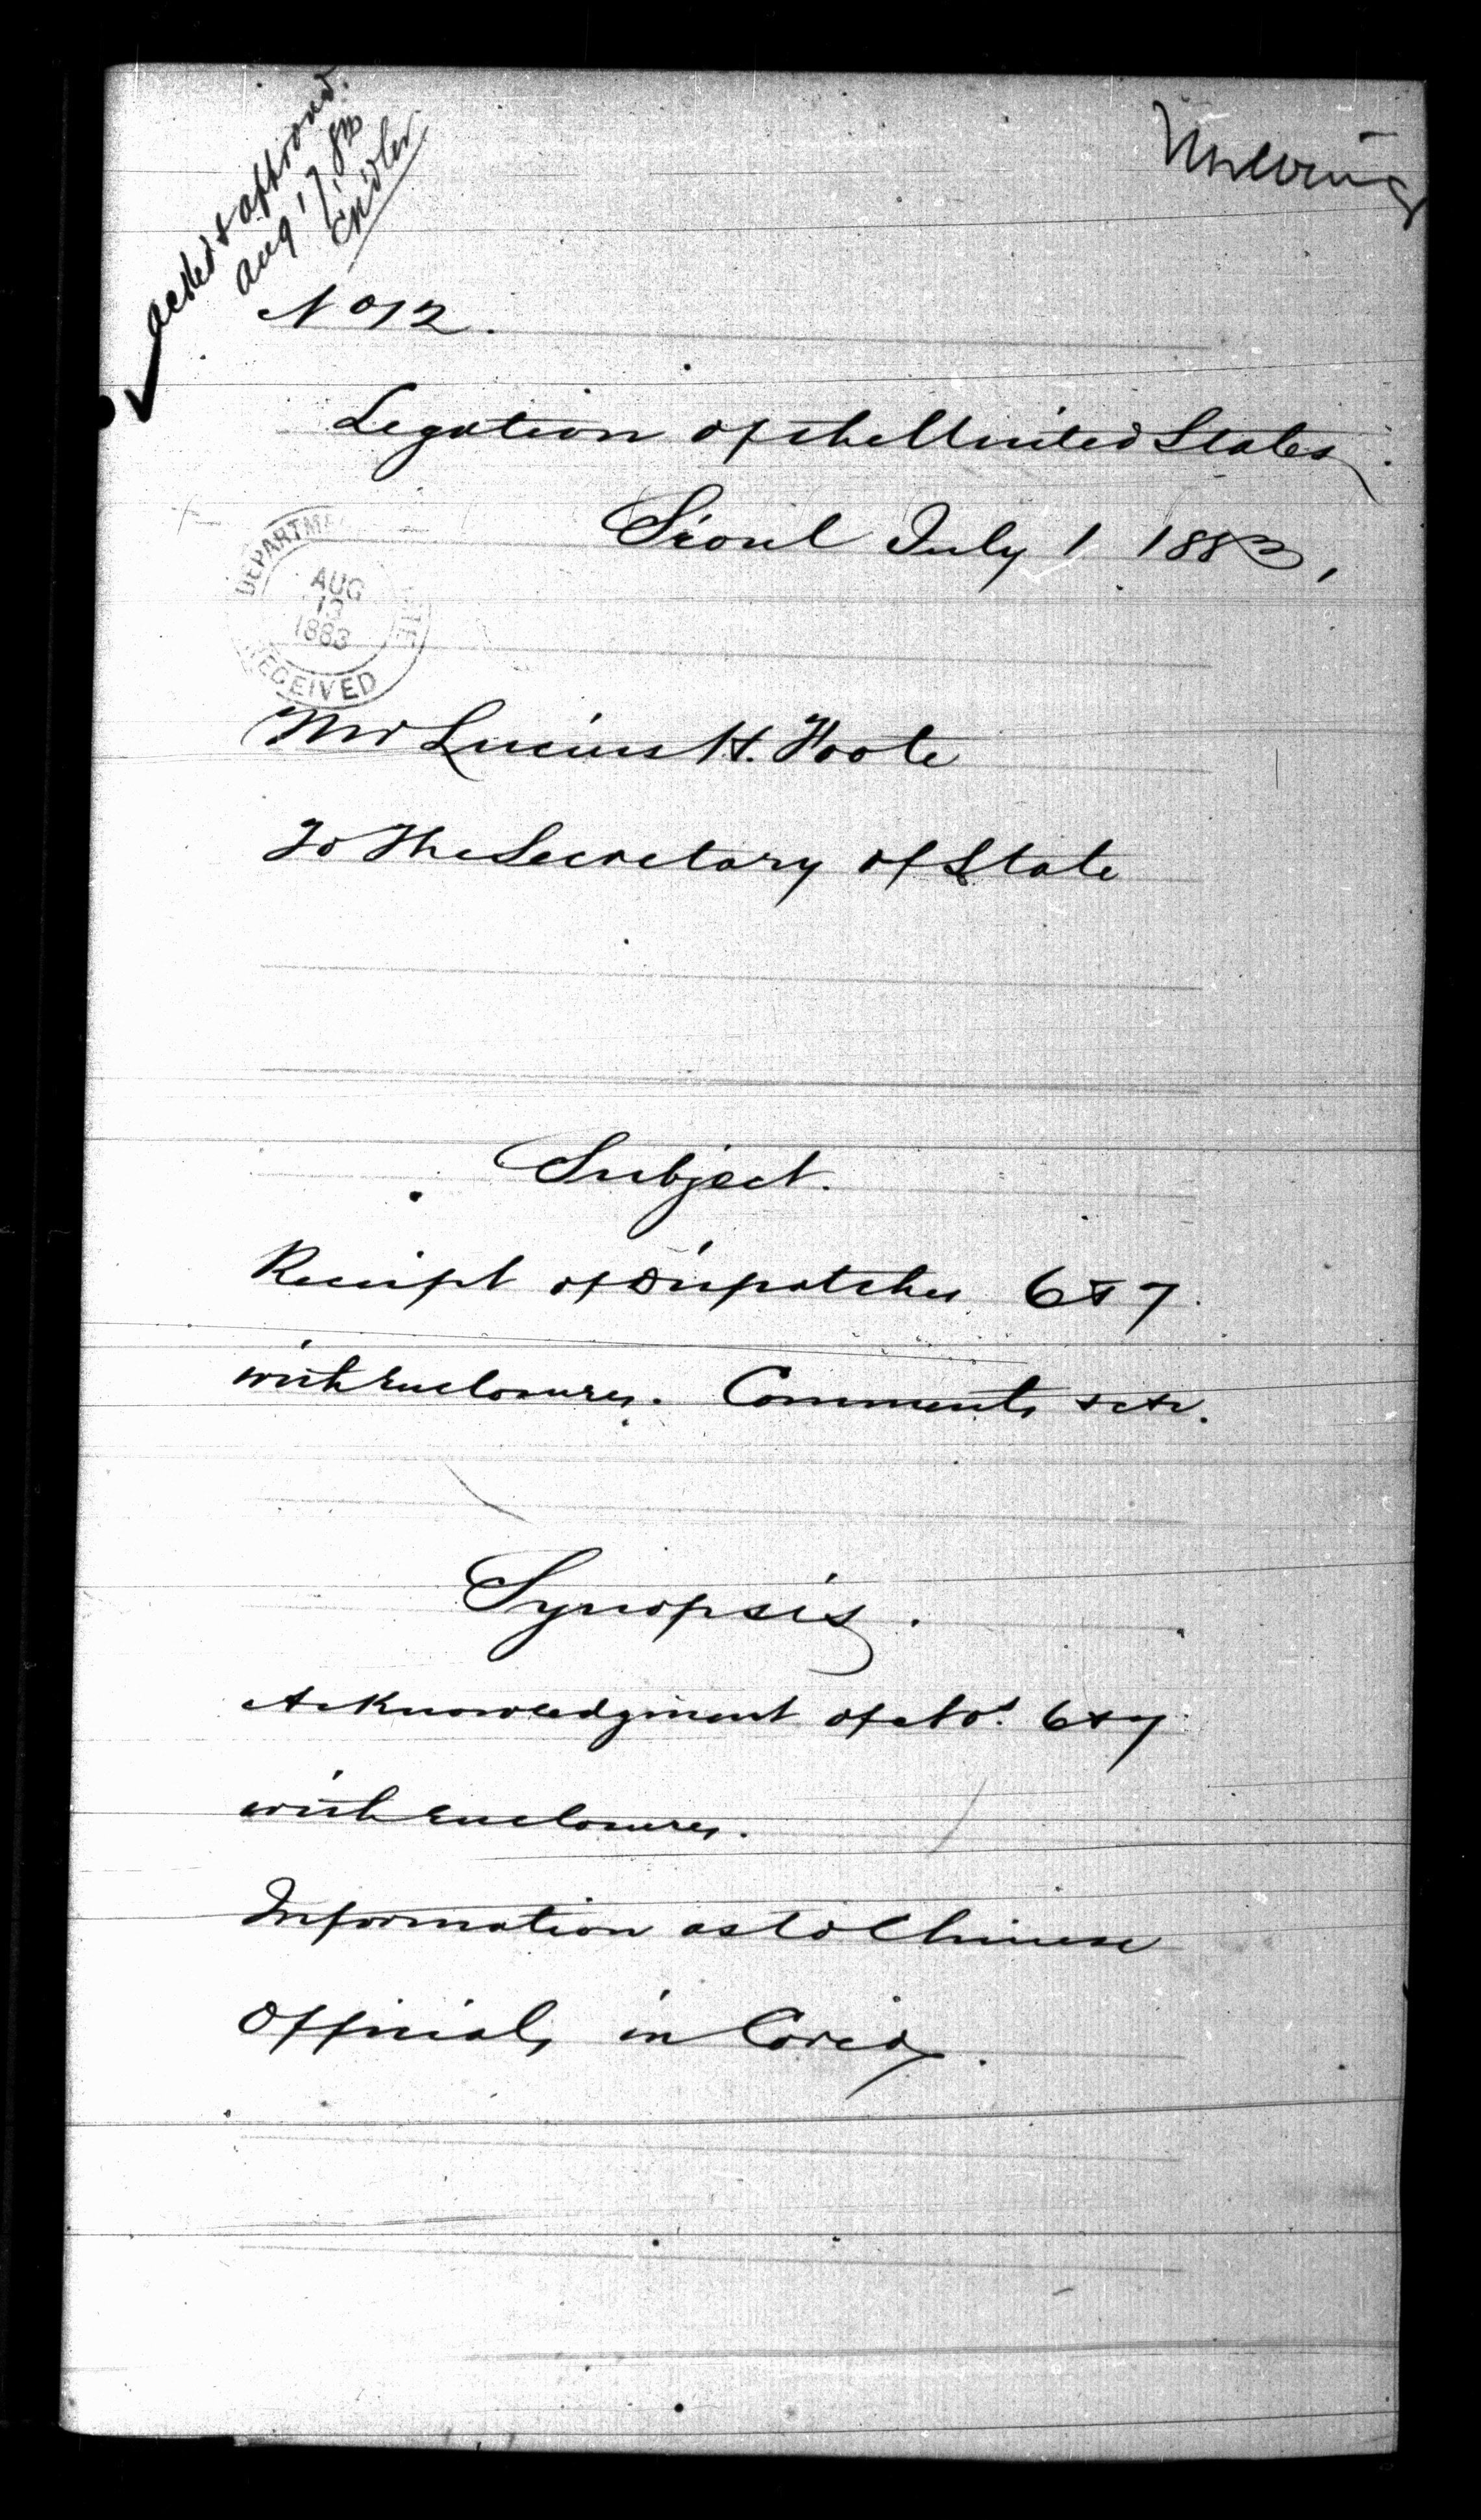 Ack'd & approved.
Aug 17, 83
No 12.
Legation of the United States
Séoul July 1 1883,
DEPARTMENT STATE
AUG
13
1883
RECEIVED
Mr Lucius H. Foote
To The Secretary of State
Subject.
Receipt of Dispatches 6 & 7
with Enclosures. Comments &c &c.
Synopsis.
Acknowledgment of Nos. 6 & 7
with Enclosures.
Information as to Chinese
Officials in Corea.